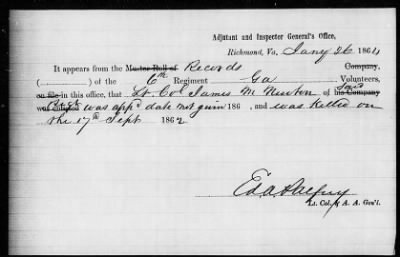 Adjutant and Inspector General's Office,
Richmond, Va., Jany 26 1864
It appears from the Muster Roll of Records Company,
(..............) of the 6th Regiment Ga Volunteers,
on file in this office, that Lt. Col James M Newton of his Said Company
Regt was appd date not given 186 , and was killed on
the 17th Sept 1862
Lt. Col. & A. A. Gen'l.